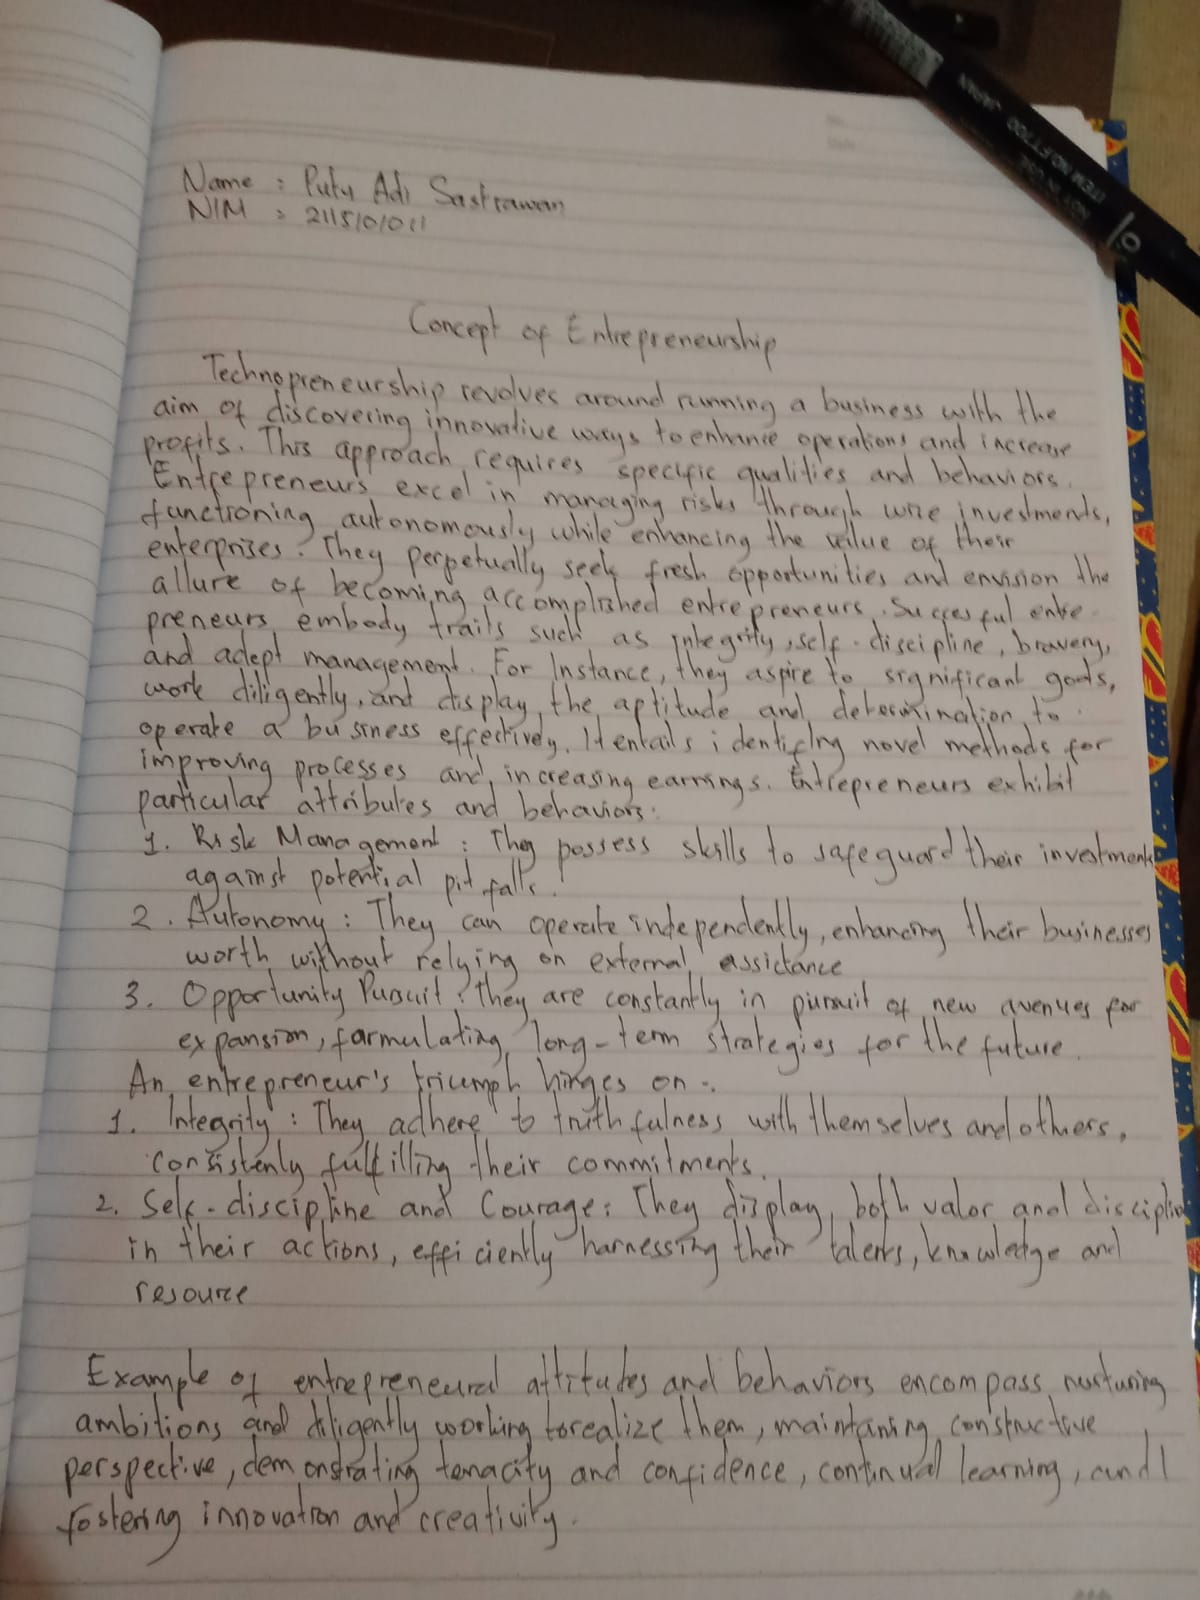 Name : Putu Adi Sastrawan
NIM : 2115101011
Concept of Entrepreneurship
Technopreneurship revolves around running a business with the
aim of discovering innovative ways to enhance operations and increase
profits. This approach requires specific qualities and behaviors.
Entrepreneurs excel in managing risks through wise investments,
functioning autonomously while enhancing the value of their
enterprises. They perpetually seek fresh opportunities and envision the
allure of becoming accomplished entrepreneurs. Succesful entre-
preneurs embody traits such as integrity, self-discipline, bravery,
and adept management. For Instance, they aspire to significant goals,
work diligently, and display the aptitude and determination to
operate a business effectively. It entails identifing novel methods for
improving processes and increasing earnings. Entrepreneurs exhibit
particular attributes and behaviors:
1. Risk Management : They possess skills to safeguard their investment
against potential pitfalls.
2. Autonomy : They can operate independently, enhancing their businesses
worth without relying on external assictance
3. Opportunity Pursuit : They are constantly in pursuit of new avenues for
expansion, formulating long-term strategies for the future.
An entrepreneur's triumph hinges on :
1. Integrity : They adhere to truthfulness with themselves and others,
consistenly fulfilling their commitments.
2. Self-discipline and Courage : They display both valor and disciplin
in their actions, efficiently harnessing their talents, knowledge and
resource
Example of entrepreneural attitudes and behaviors encompass nurturing
ambitions and diligently working to realize them, maintaning constructive
perspective, demonstrating tenacity and confidence, continual learning, and
fostering innovation and creativity.
ITEM NO.FT700
JAPAN